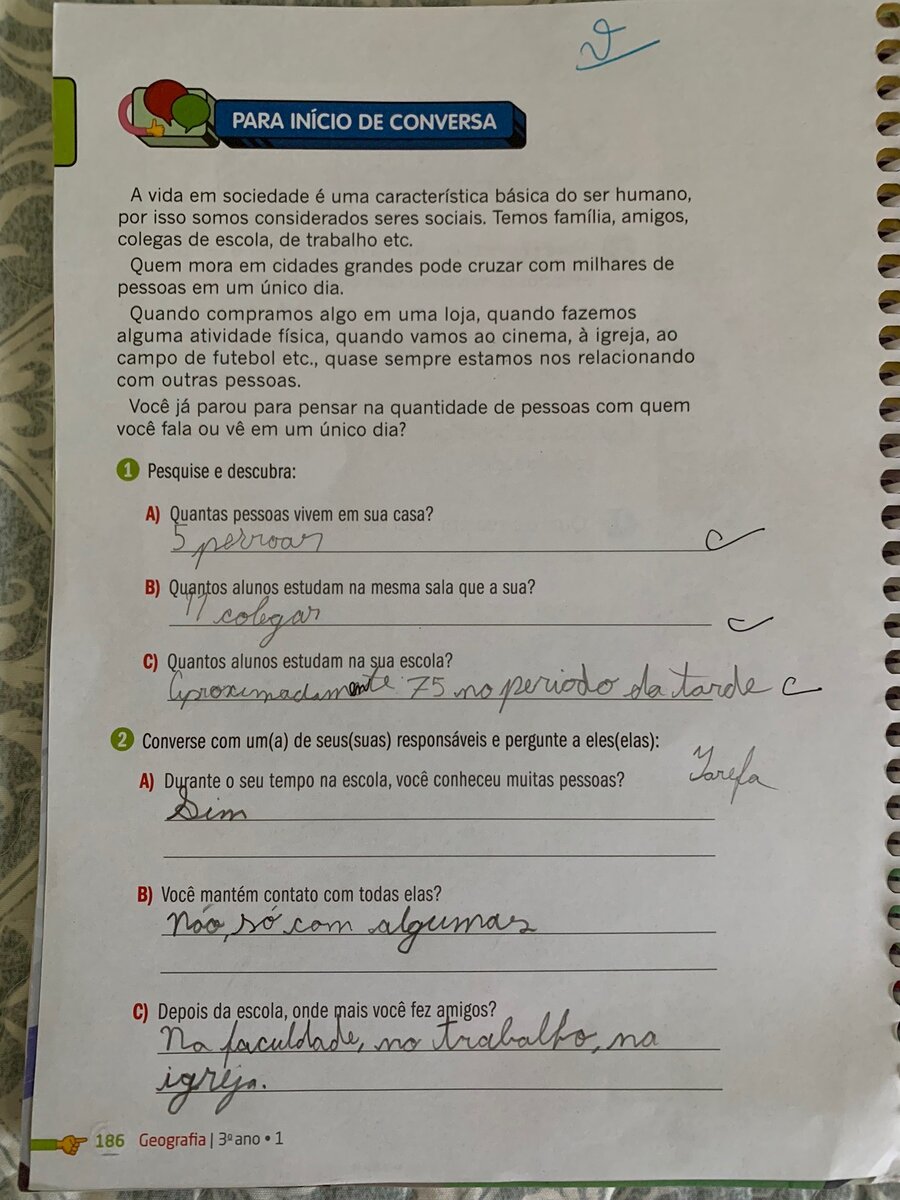 PARA INÍCIO DE CONVERSA
A vida em sociedade é uma característica básica do ser humano,
por isso somos considerados seres sociais. Temos família, amigos,
colegas de escola, de trabalho etc.
Quem mora em cidades grandes pode cruzar com milhares de
pessoas em um único dia.
Quando compramos algo em uma loja, quando fazemos
alguma atividade física, quando vamos ao cinema, à igreja, ao
campo de futebol etc., quase sempre estamos nos relacionando
com outras pessoas.
Você já parou para pensar na quantidade de pessoas com quem
você fala ou vê em um único dia?
1 Pesquise e descubra:
A) Quantas pessoas vivem em sua casa?
5 pessoas
B) Quantos alunos estudam na mesma sala que a sua?
11 colegas
C) Quantos alunos estudam na sua escola?
Aproximadamente 75 no periodo da tarde
2 Converse com um(a) de seus(suas) responsáveis e pergunte a eles(elas):
Tarefa
A) Durante o seu tempo na escola, você conheceu muitas pessoas?
Sim
B) Você mantém contato com todas elas?
Não, só com algumas
C) Depois da escola, onde mais você fez amigos?
Na faculdade, no trabalho, na
igreja.
186 Geografia | 3º ano • 1